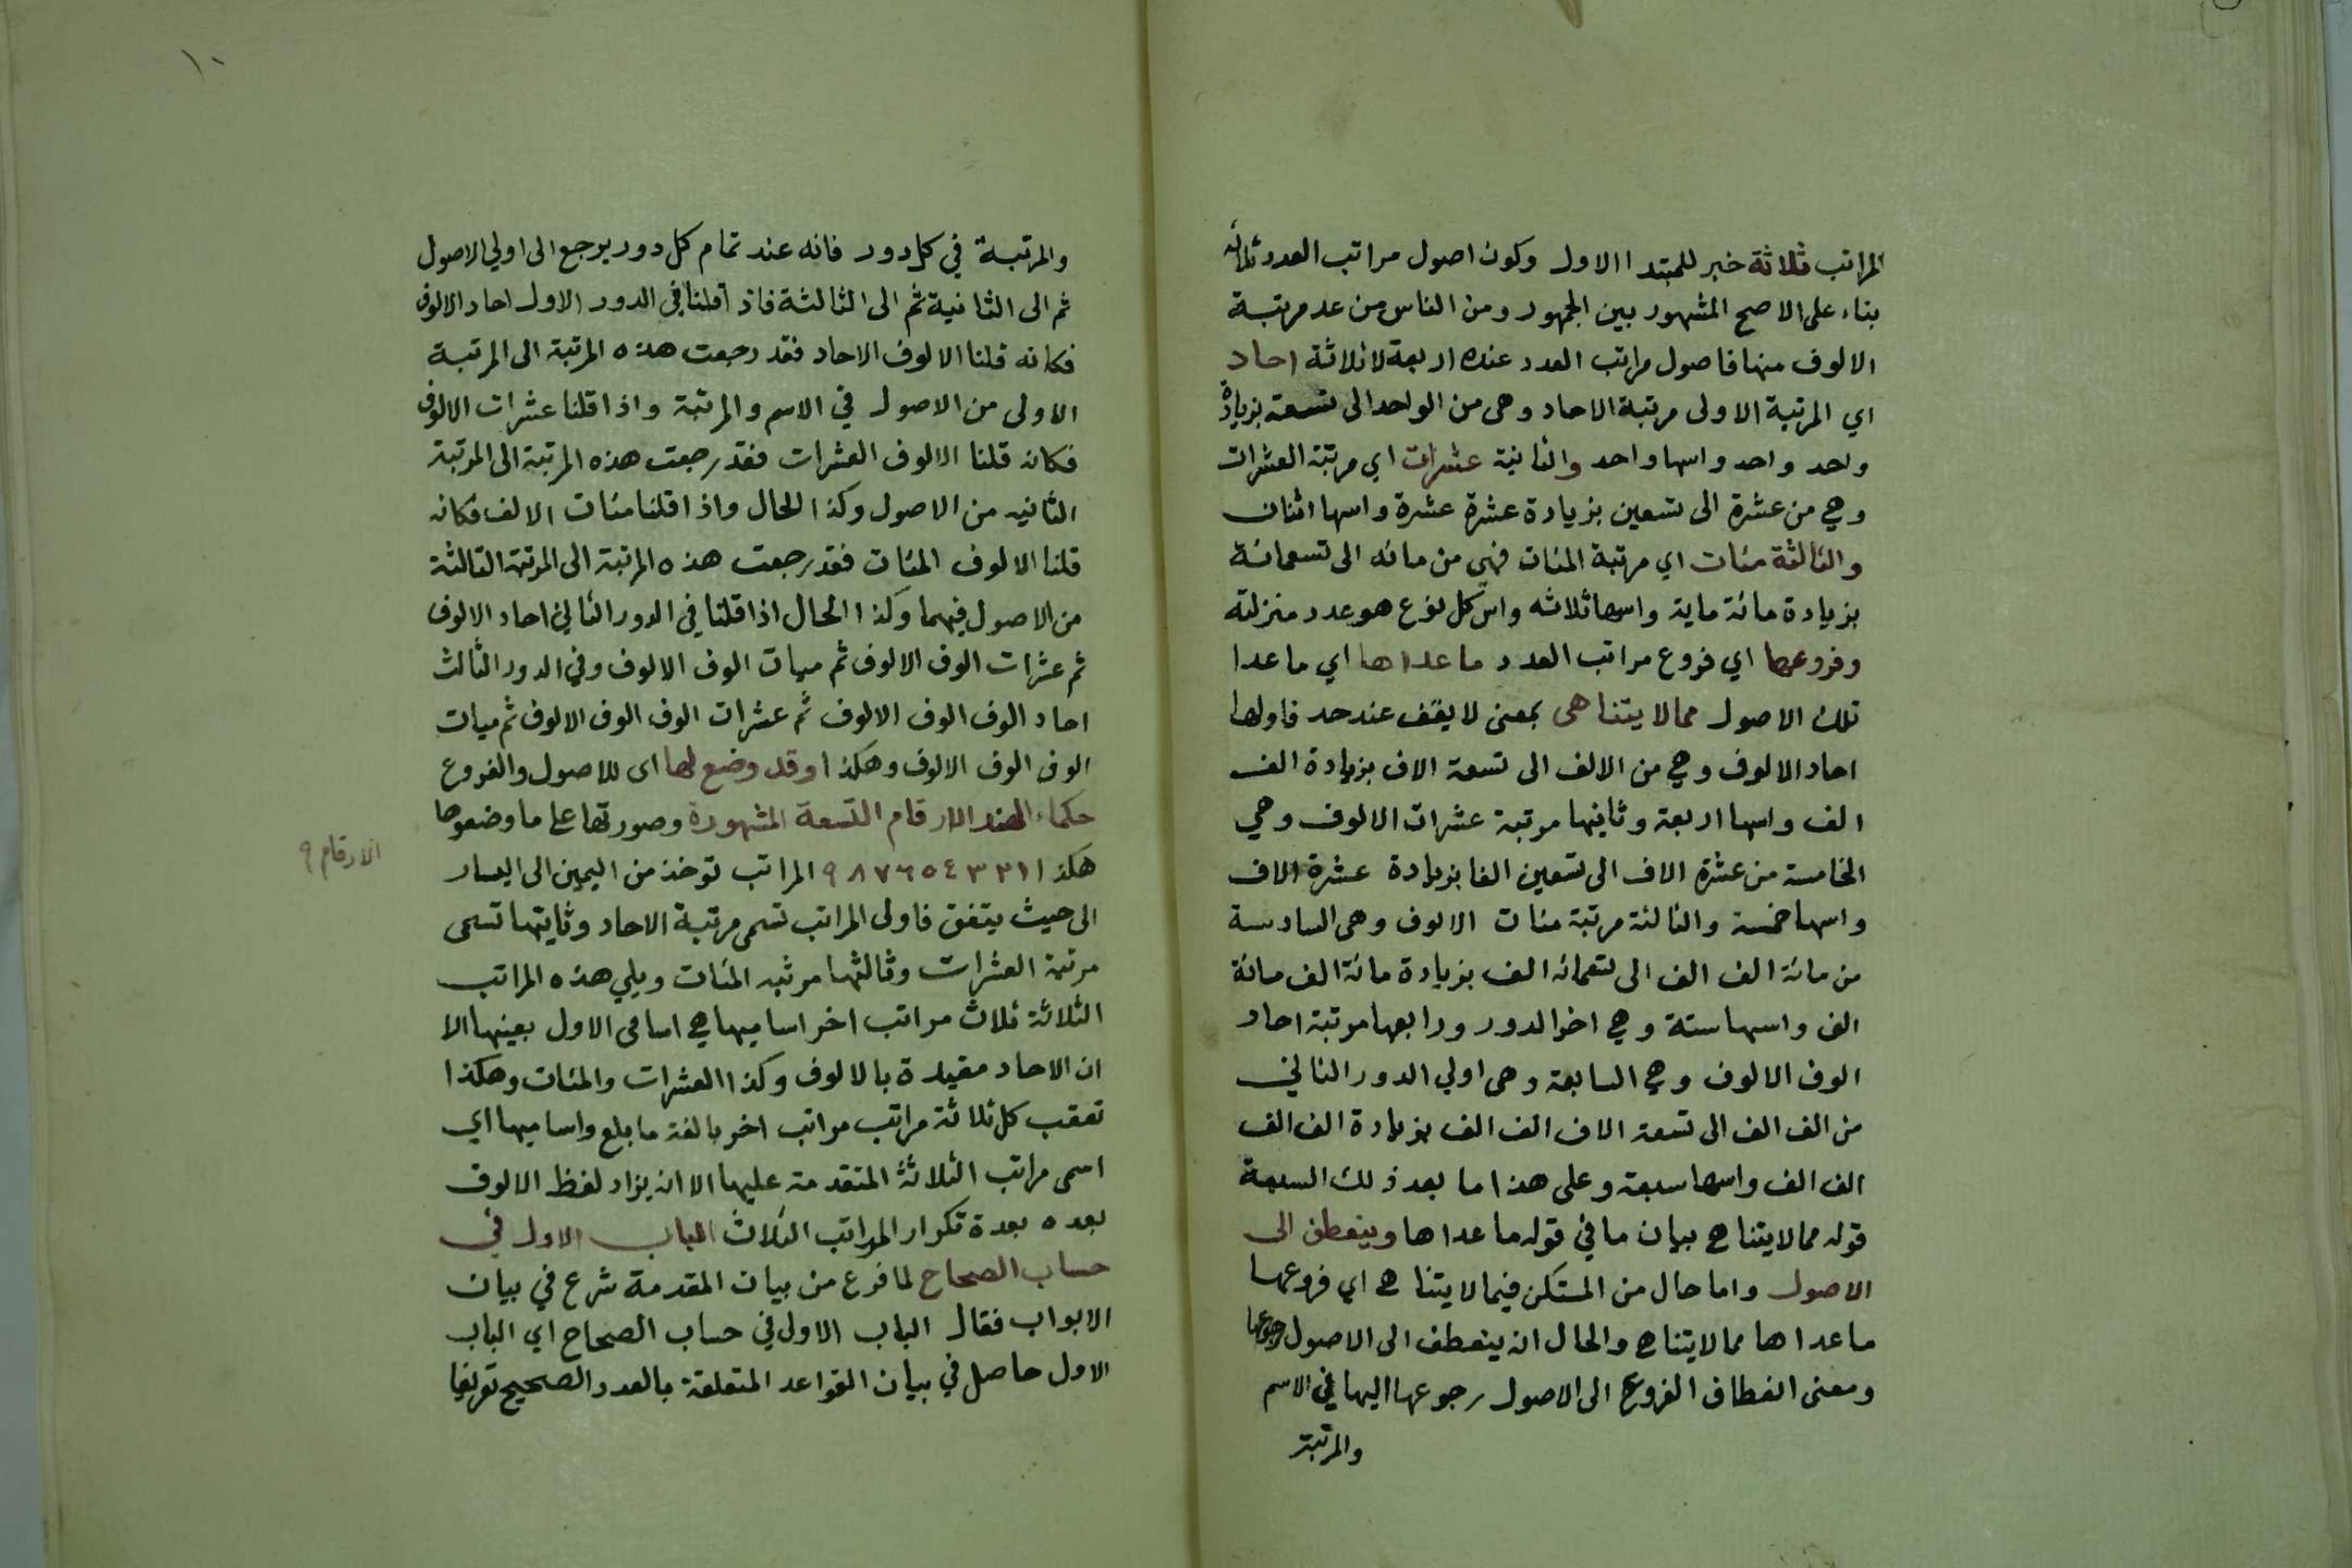 المراتب ثلاثة خبر للمبتدا الاول وكون اصول مراتب العدد ثلاثه
بناء على الاصح المشهور بين الجمهور ومن الناس من عد مرتبة
الالوف منها فاصول مراتب العدد عنده اربعة لا ثلاثة احاد
اي المرتبة الاولى مرتبة الاحاد وهى من الواحد الى تسعة بزيادة
واحد واحد واسها واحد والثانية عشرات اي مرتبة العشرات
وهي من عشرة الى تسعين بزيادة عشرة عشرة واسها اثنان
والثالثة مئات اي مرتبة المئات فهي من مائه الى تسعمائة
بزيادة مائة ماية واسها ثلاثه واس كل نوع هو عدد منزلته
وفروعها اي فروع مراتب العدد ما عداها اي ما عدا
تلك الاصول مما لا يتناهى بمعنى لا يقف عند حد فاولها
احاد الالوف وهي من الالف الى تسعة الاف بزيادة الف
الف واسها اربعة وثانيها مرتبة عشرات الالوف وهي
الخامسة من عشرة الاف الى تسعين الفا بزيادة عشرة الاف
واسها خمسة والثالثة مرتبة مئات الالوف وهى السادسة
من مائة الف الى تسعمائه الف بزيادة مائة الف مائة
الف واسها ستة وهي اخر الدور ورابعها مرتبة احاد
الوف الالوف وهي السابعة وهى اولي الدور الثاني
من الف الف الى تسعة الاف الف الف بزيادة الف الف
الف الف واسها سبعة وعلى هذا ما بعد ذلك السبعة
قوله مما لا يتناهي بيان ما في قوله ما عداها وينعطف الى
الاصول واما حال من المستكن فيما لا يتناهي اي فروعها
ما عداها مما لا يتناهي والحال ان ينعطف الى الاصول رجوعها
ومعنى انعطاف الفروع الى الاصول رجوعها اليها في الاسم
والمرتبة
١٠
والمرتبة في كل دور فانه عند تمام كل دور يرجع الى اولي الاصول
ثم الى الثانية ثم الى الثالثة فاذ اقلنا في الدور الاول احاد الالوف
فكانه قلنا الالوف الاحاد فقد رجعت هذه المرتبة الى المرتبة
الاولى من الاصول في الاسم والمرتبة واذا قلنا عشرات الالوف
فكانه قلنا الالوف العشرات فقد رجعت هذه المرتبة الى المرتبة
الثانيه من الاصول وكذا الحال واذا قلنا مئات الالف فكانه
قلنا الالوف المئات فقد رجعت هذه المرتبة الى المرتبة الثالثة
من الاصول فيهما وكذا الحال اذا قلنا في الدور الثاني احاد الالوف
ثم عشرات الوف الالوف ثم ميات الوف الالوف وفي الدور الثالث
احاد الوف الوف الالوف ثم عشرات الوف الوف الالوف ثم ميات
الوف الوف الالوف وهكذا وقد وضع لها اى للاصول والفروع
حكماء الهند الارقام التسعة المشهورة وصورتها على ما وضعوها
الارقام ٩
هكذا ١ ٢ ٣ ٤ ٥ ٦ ٧ ٨ ٩ المراتب توخذ من اليمين الى اليسار
الى حيث يتفق فاولى المراتب تسمى مرتبة الاحاد وثانيتها تسمى
مرتبة العشرات وثالثها مرتبه المئات ويلي هذه المراتب
الثلاثة ثلاث مراتب اخر اساميها هي اسامى الاول بعينها الا
ان الاحاد مقيدة بالالوف وكذا العشرات والمئات وهكذا
تعقب كل ثلاثة مراتب مراتب اخر بالغة ما بلع واساميها اي
اسمى مراتب الثلاثة المتقدمة عليها الا ان يزاد لفظ الالوف
بعده بعدة تكرار المراتب الثلاث الباب الاول في
حساب الصحاح لما فرع من بيان المقدمة شرع في بيان
الابواب فقال الباب الاول في حساب الصحاح اي الباب
الاول حاصل في بيان القواعد المتعلقة بالعدد الصحيح تعريفا